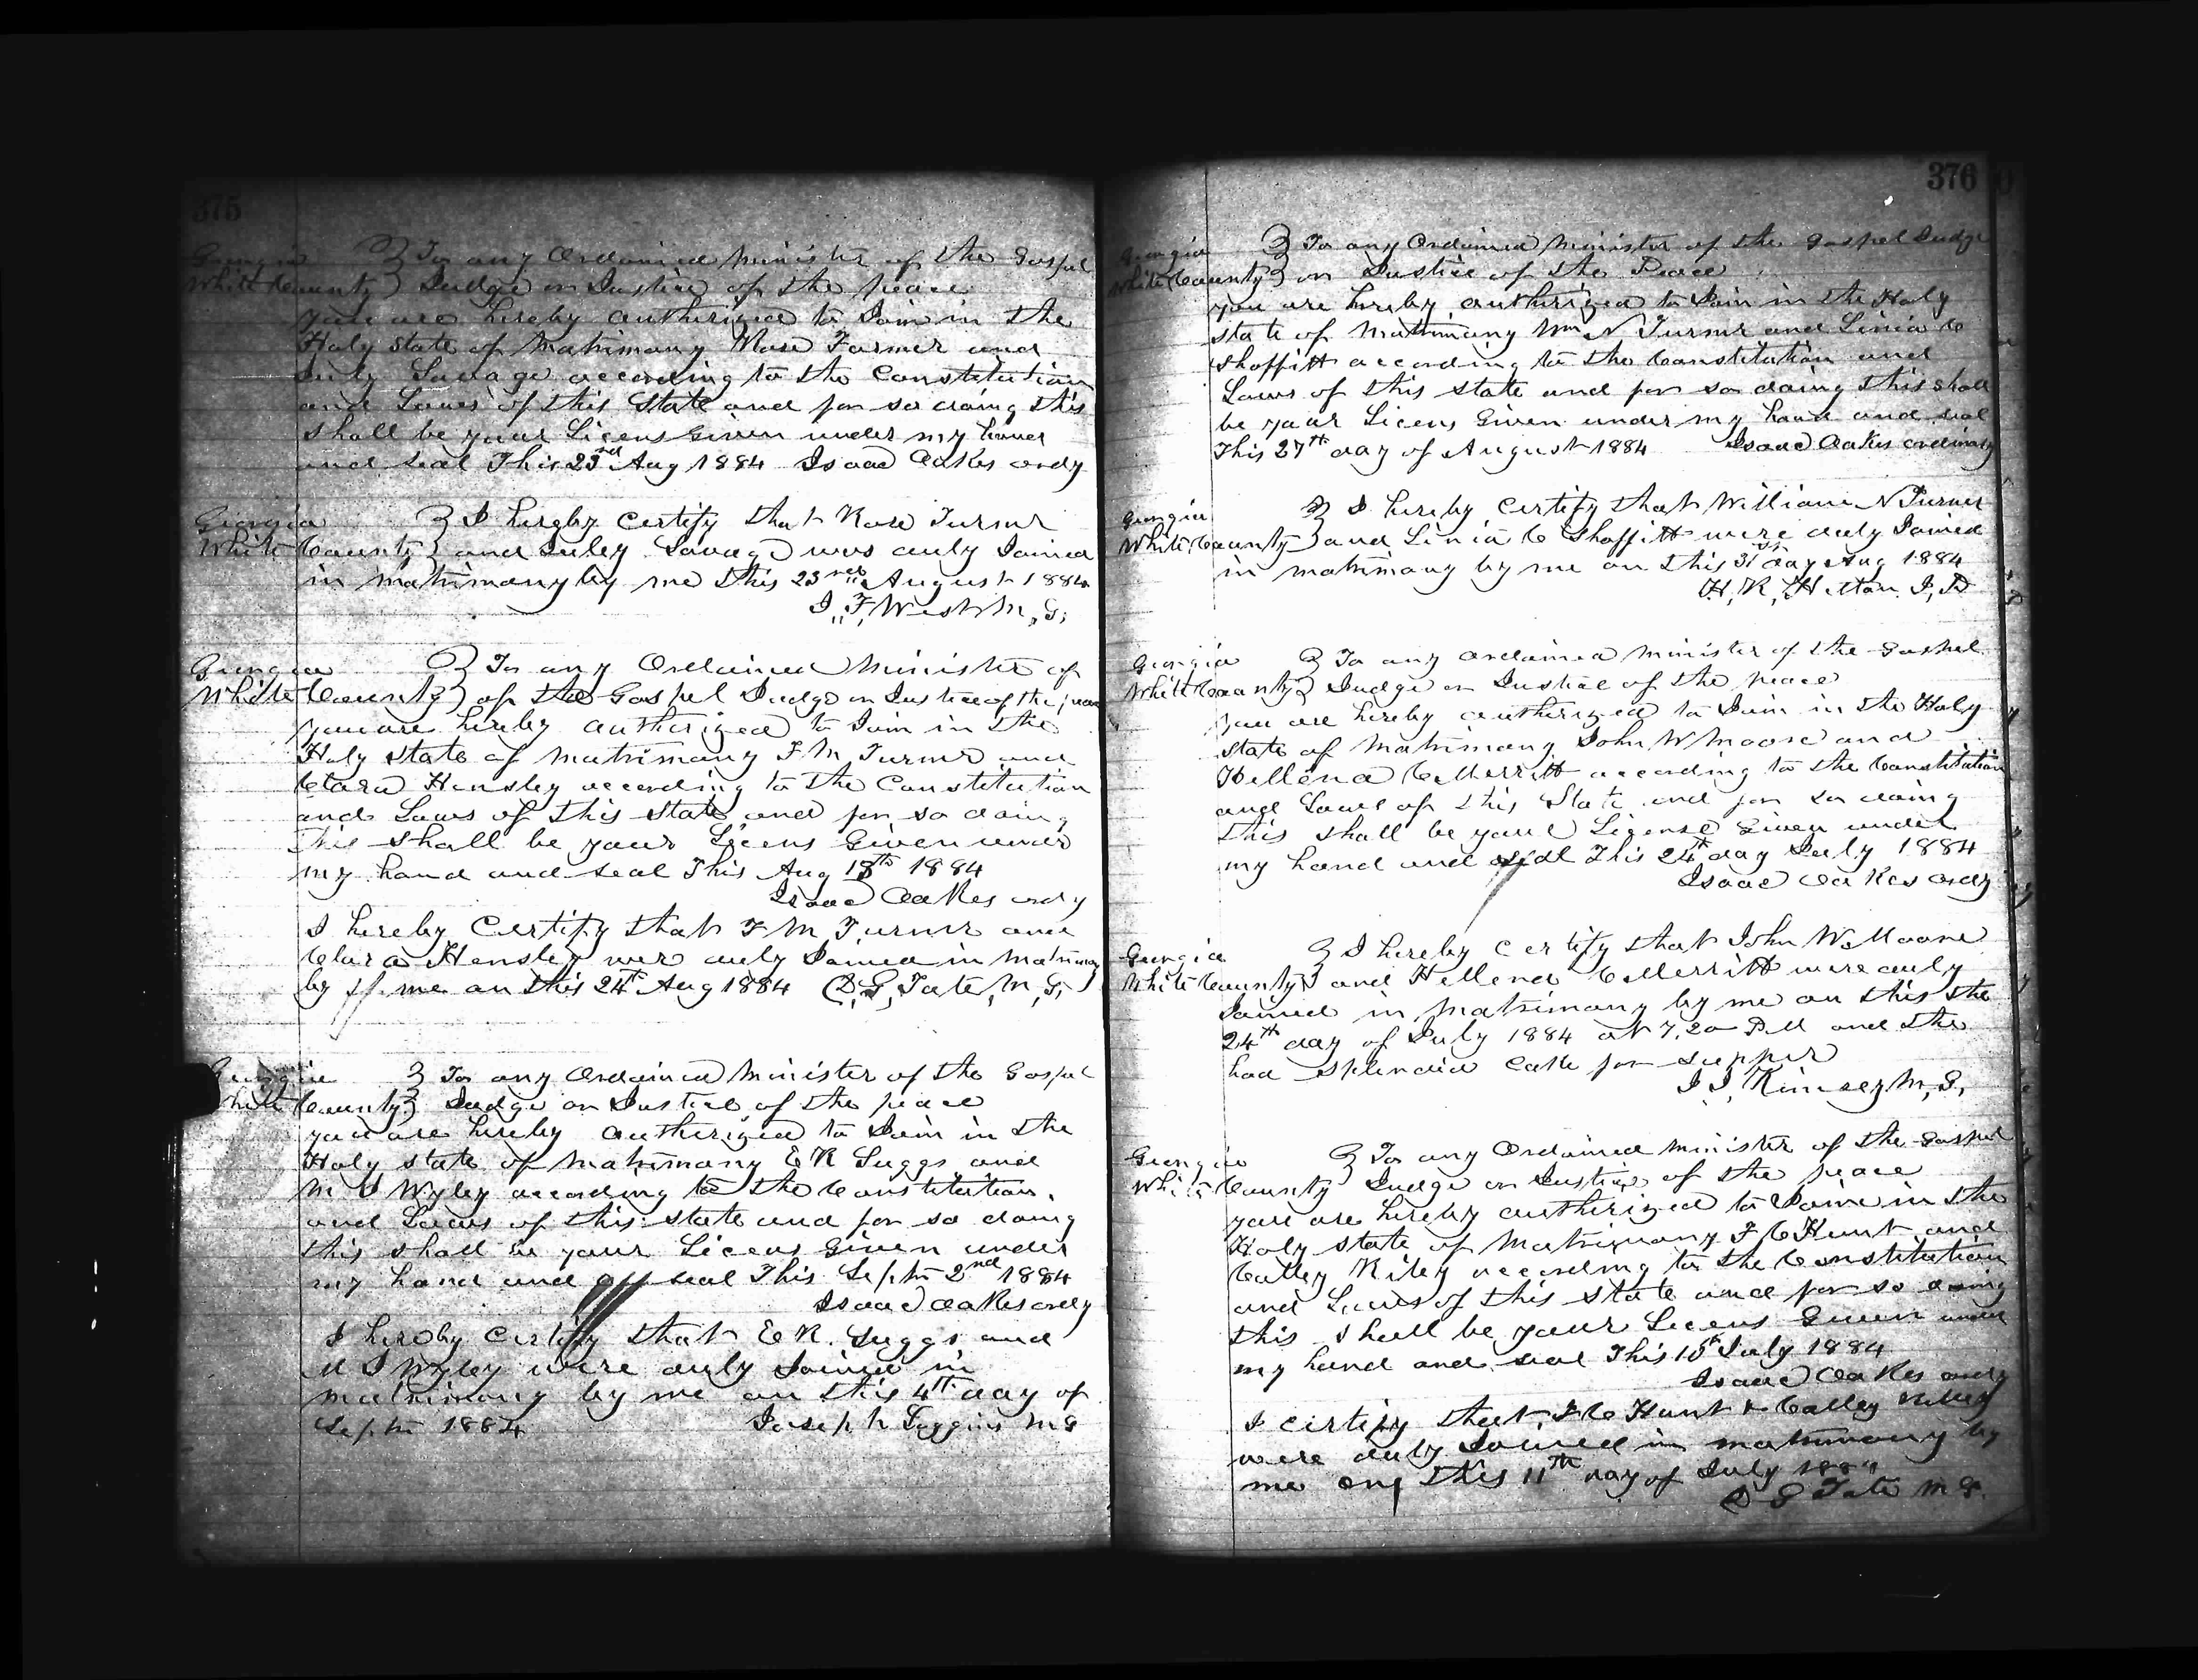 375
Georgia } To any Ordained Minister of the Gospel
White County } Judge or Justice of the peace
you are hereby authorized to Join in the
Holy State of Matrimony Rose Turner and
July Savage according to the Constitution
and Laws of this State and for so doing this
shall be your Licens Given under my hand
and seal This 23rd Aug 1884 Isaac Oakes ordy
Georgia } I hereby Certify that Rose Turner
White County } and Juley Savage was duly Joined
in matrimony by me this 23rd August 1884
J. F. West M. G.
Georgia } To any Ordained Minister of
White County } of the Gospel Judge or Justice of the peace
you are hereby authorized to Join in the
Holy State of Matrimony F M Turner and
Clara Hensley according to the Constitution
and Laws of this State and for so doing
This shall be your Licens Given under
my hand and seal This Aug 18th 1884
Isaac Oakes ordy
I hereby Certify that F M Turner and
Clara Hensley wer duly Joined in Matrimony
by me on this 24th Aug 1884 D, G, Tate, M, G,
Georgia } To any Ordained Minister of the Gospel
White County } Judge or Justice of the peace
you are hereby authorized to Join in the
Holy state of Matrimony E R Suggs and
M J Wyley according to the Constitution
and Laws of this state and for so doing
this shall be your Licens Given under
my hand and seal This Septm 2nd 1884
Isaac Oakes ordy
I hereby Certify that E R Suggs and
M J Wyley were duly Joined in
matrimony by me on this 4th day of
Septm 1884 Joseph M G
376
Georgia } To any Ordained Minister of the Gospel Judge
White County } or Justice of the Peace
you are hereby authorized to Join in the Holy
state of Matrimony Wm N Turner and Linia C
Shoffitt according to the Constitution and
Laws of this state and for so doing this shall
be your Licens Given under my hand and seal
This 27th day of August 1884 Isaac Oakes ordinary
Georgia } I hereby Certify that William N Turner
White County } and Linia C Shoffitt were duly Joined
in matrimony by me on this 31st day Aug 1884
H, R, J, P
Georgia } To any ordained Minister of the Gospel
White County } Judge or Justice of the peace
you are hereby authorized to Join in the Holy
state of Matrimony John W Moore and
Hellena C Merritt according to the Constitution
and Laws of this State and for so doing
this shall be your License Given under
my hand and seal This 24th day July 1884
Isaac Oakes ordy
Georgia } I hereby certify that John W. Moore
White County } and Hellena C Merritt were duly
Joined in Matrimony by me on this the
24th day of July 1884 at 7,20 P M and the
had splendid Cake for supper
J J, Kimsey M, G,
Georgia } To any Ordained minister of the Gospel
White County } Judge or Justice of the peace
you are hereby authorized to Joine in the
Holy state of Matrimony F C Hunt and
Calley Riley according to the Constitution
and Laws of this state and for so doing
this shall be your Licens Given under
my hand and seal This 10th July 1884
Isaac Oakes ordy
I certify that F C Hunt & Calley Riley
were duly Joined in matrimony by
me on this 11th day of July 1884
D G Tate M G.